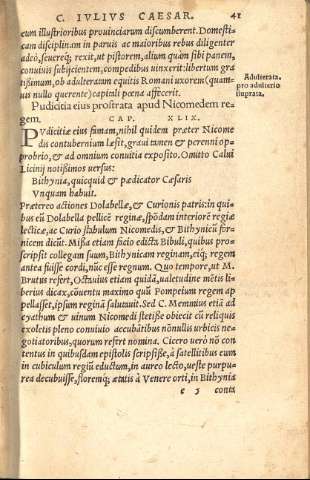 C. IVLIVS CAESAR. 41
cum illustrioribus prouinciarum discumberent. Domesti-
cam disciplinam in paruis ac maioribus rebus diligenter
adeò, seuereq́; rexit, ut pistorem, alium quàm sibi panem,
conuiuis subijcientem, compedibus uinxerit: libertum gra
tißimum, ob adulteratam equitis Romani uxorem (quam-
uis nullo querente) capitali pœna affecerit.
Adulterata.
pro adulterio
stuprata.
Pudicitia eius prostrata apud Nicomedem re-
gem. CAP. XLIX.
PVdicitiæ eius famam, nihil quidem præter Nicome
dis contubernium læsit, graui tamen & perenni op-
probrio, & ad omnium conuitia exposito. Omitto Calui
Licinij notißimos uersus:
Bithynia, quicquid & pædicator Cæsaris
Vnquam habuit.
Prætereo actiones Dolabellæ, & Curionis patris: in qui
bus eū Dolabella pellicē reginæ, spōdam interiorē regiæ
lecticæ, ac Curio stabulum Nicomedis, & Bithynicū for
nicem dicūt. Mißa etiam facio edicta Bibuli, quibus pro-
scripsit collegam suum, Bithynicam reginam, eiq́; regem
antea fuisse cordi, nūc esse regnum. Quo tempore, ut M.
Brutus refert, Octauius etiam quidā, ualetudine mētis li-
berius dicax, cōuentu maximo quū Pompeium regem ap
pellasset, ipsum reginā salutauit. Sed C. Memmius etiā ad
cyathum & uinum Nicomedi stetiße obiecit cū reliquis
exoletis pleno conuiuio accubātibus nōnullis urbicis ne-
gotiatoribus, quorum refert nomina. Cicero uerò nō con
tentus in quibusdam epistolis scripsiße, à satellitibus eum
in cubiculum regiū eductum, in aureo lecto, ueste purpu-
rea decubuisse, floremq́; ætatis à Venere orti, in Bithynia
e 3 conta